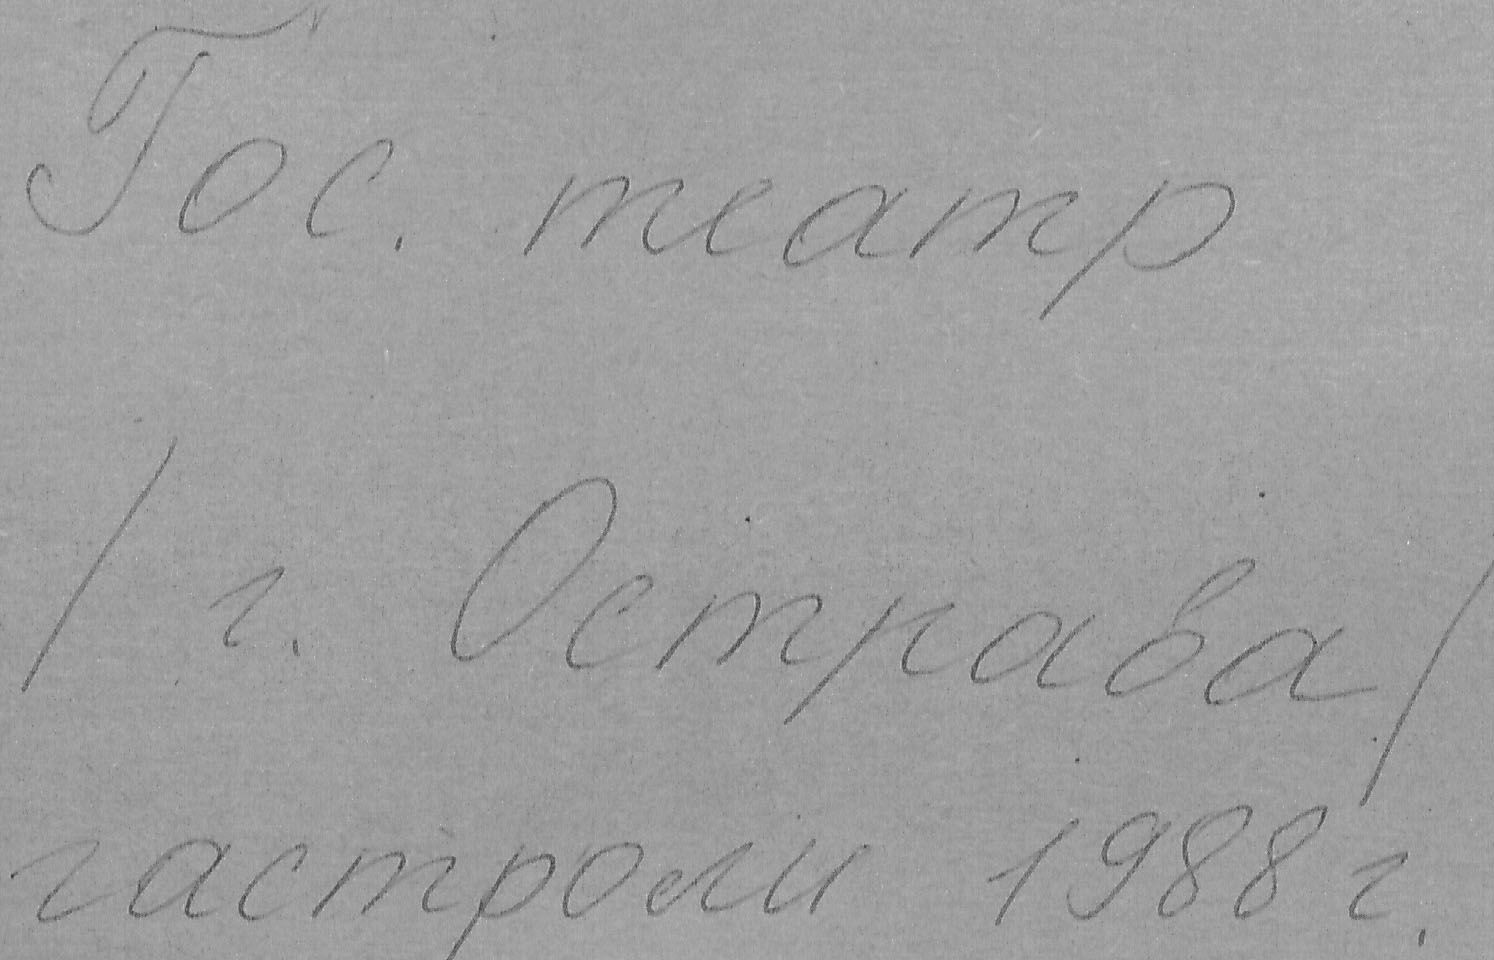 Гос. театр
/ г. Острава /
гастроли 1988 г.